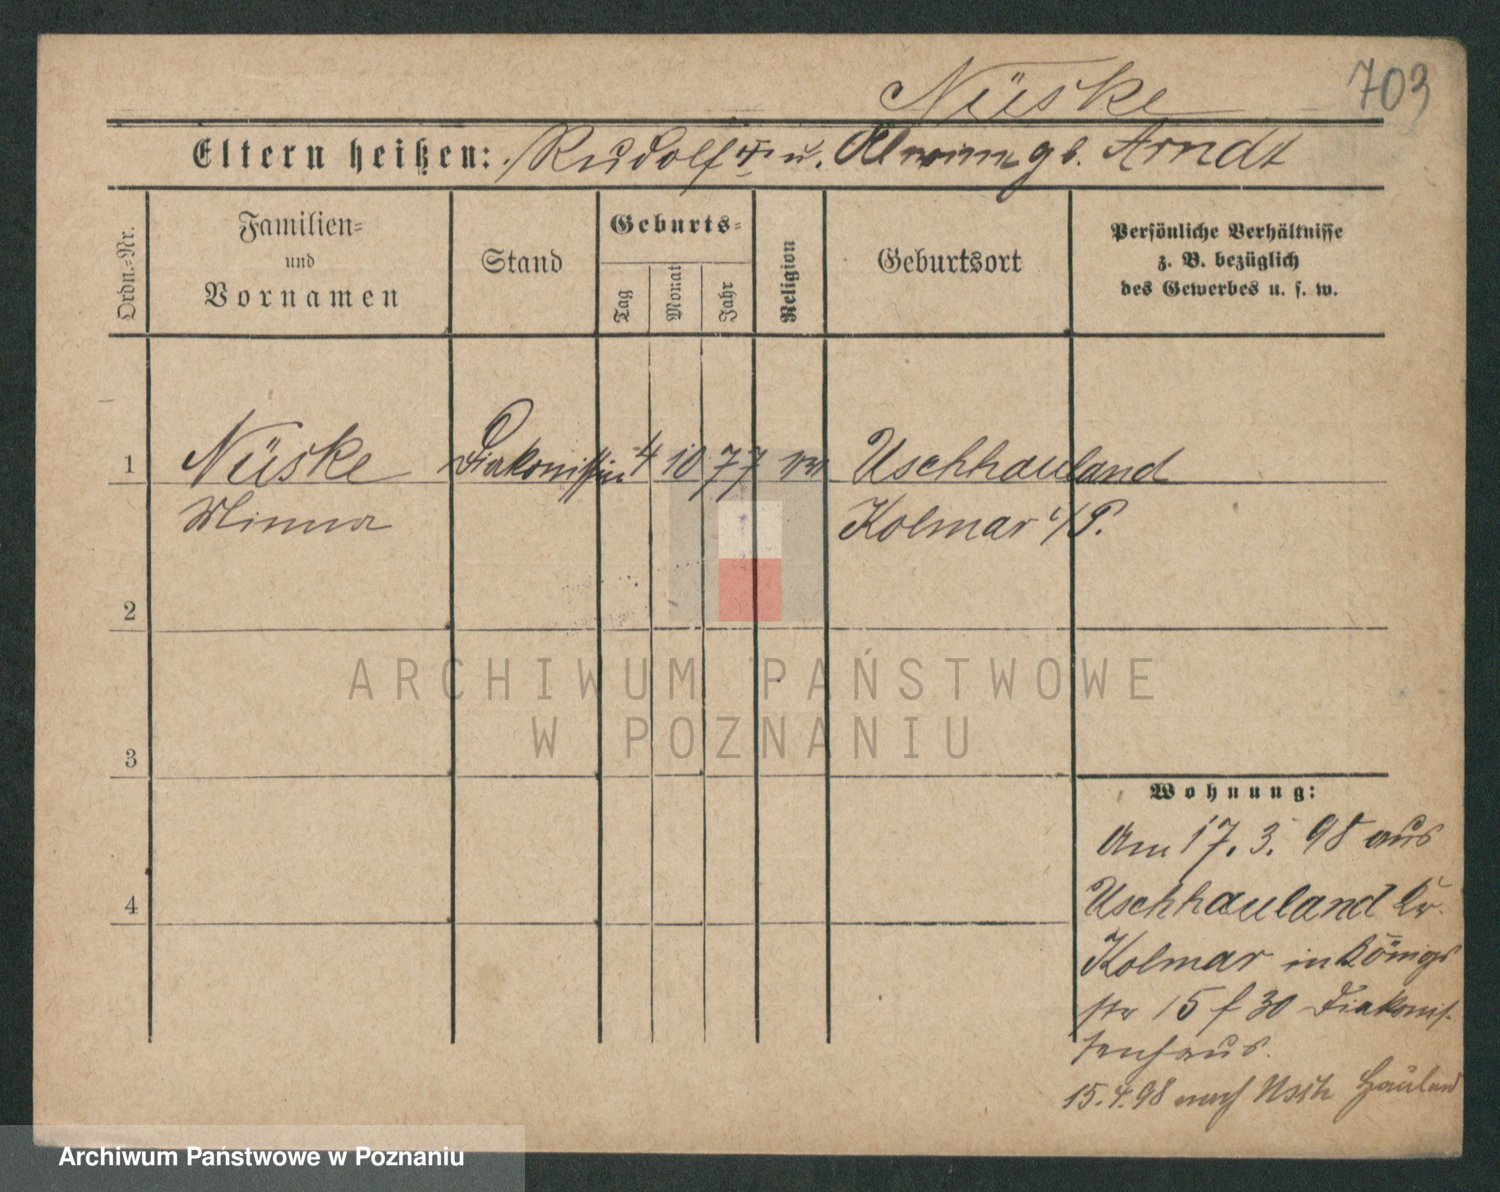 Nüske
703
Eltern heißen: Rudolf u. Alwine gb. Arndt
Ordn.-Nr.
Familien- und Vornamen
Stand
Geburts-
Tag
Monat
Jahr
Religion
Geburtsort
Persönliche Verhältnisse
z. B. bezüglich
des Gewerbes u. s. w.
1 Nüske Diakonissin 4 10 77 Uschhauland
Minna Kolmar i/P.
2
3
4
Wohnung:
Am 17. 3. 98 aus
Uschhauland Kr.
Kolmar in Königs
str 15 f 30 Diakonis-
senhaus.
15.4.98 nach Usch Hauland
ARCHIWUM PAŃSTWOWE
W POZNANIU
Archiwum Państwowe w Poznaniu